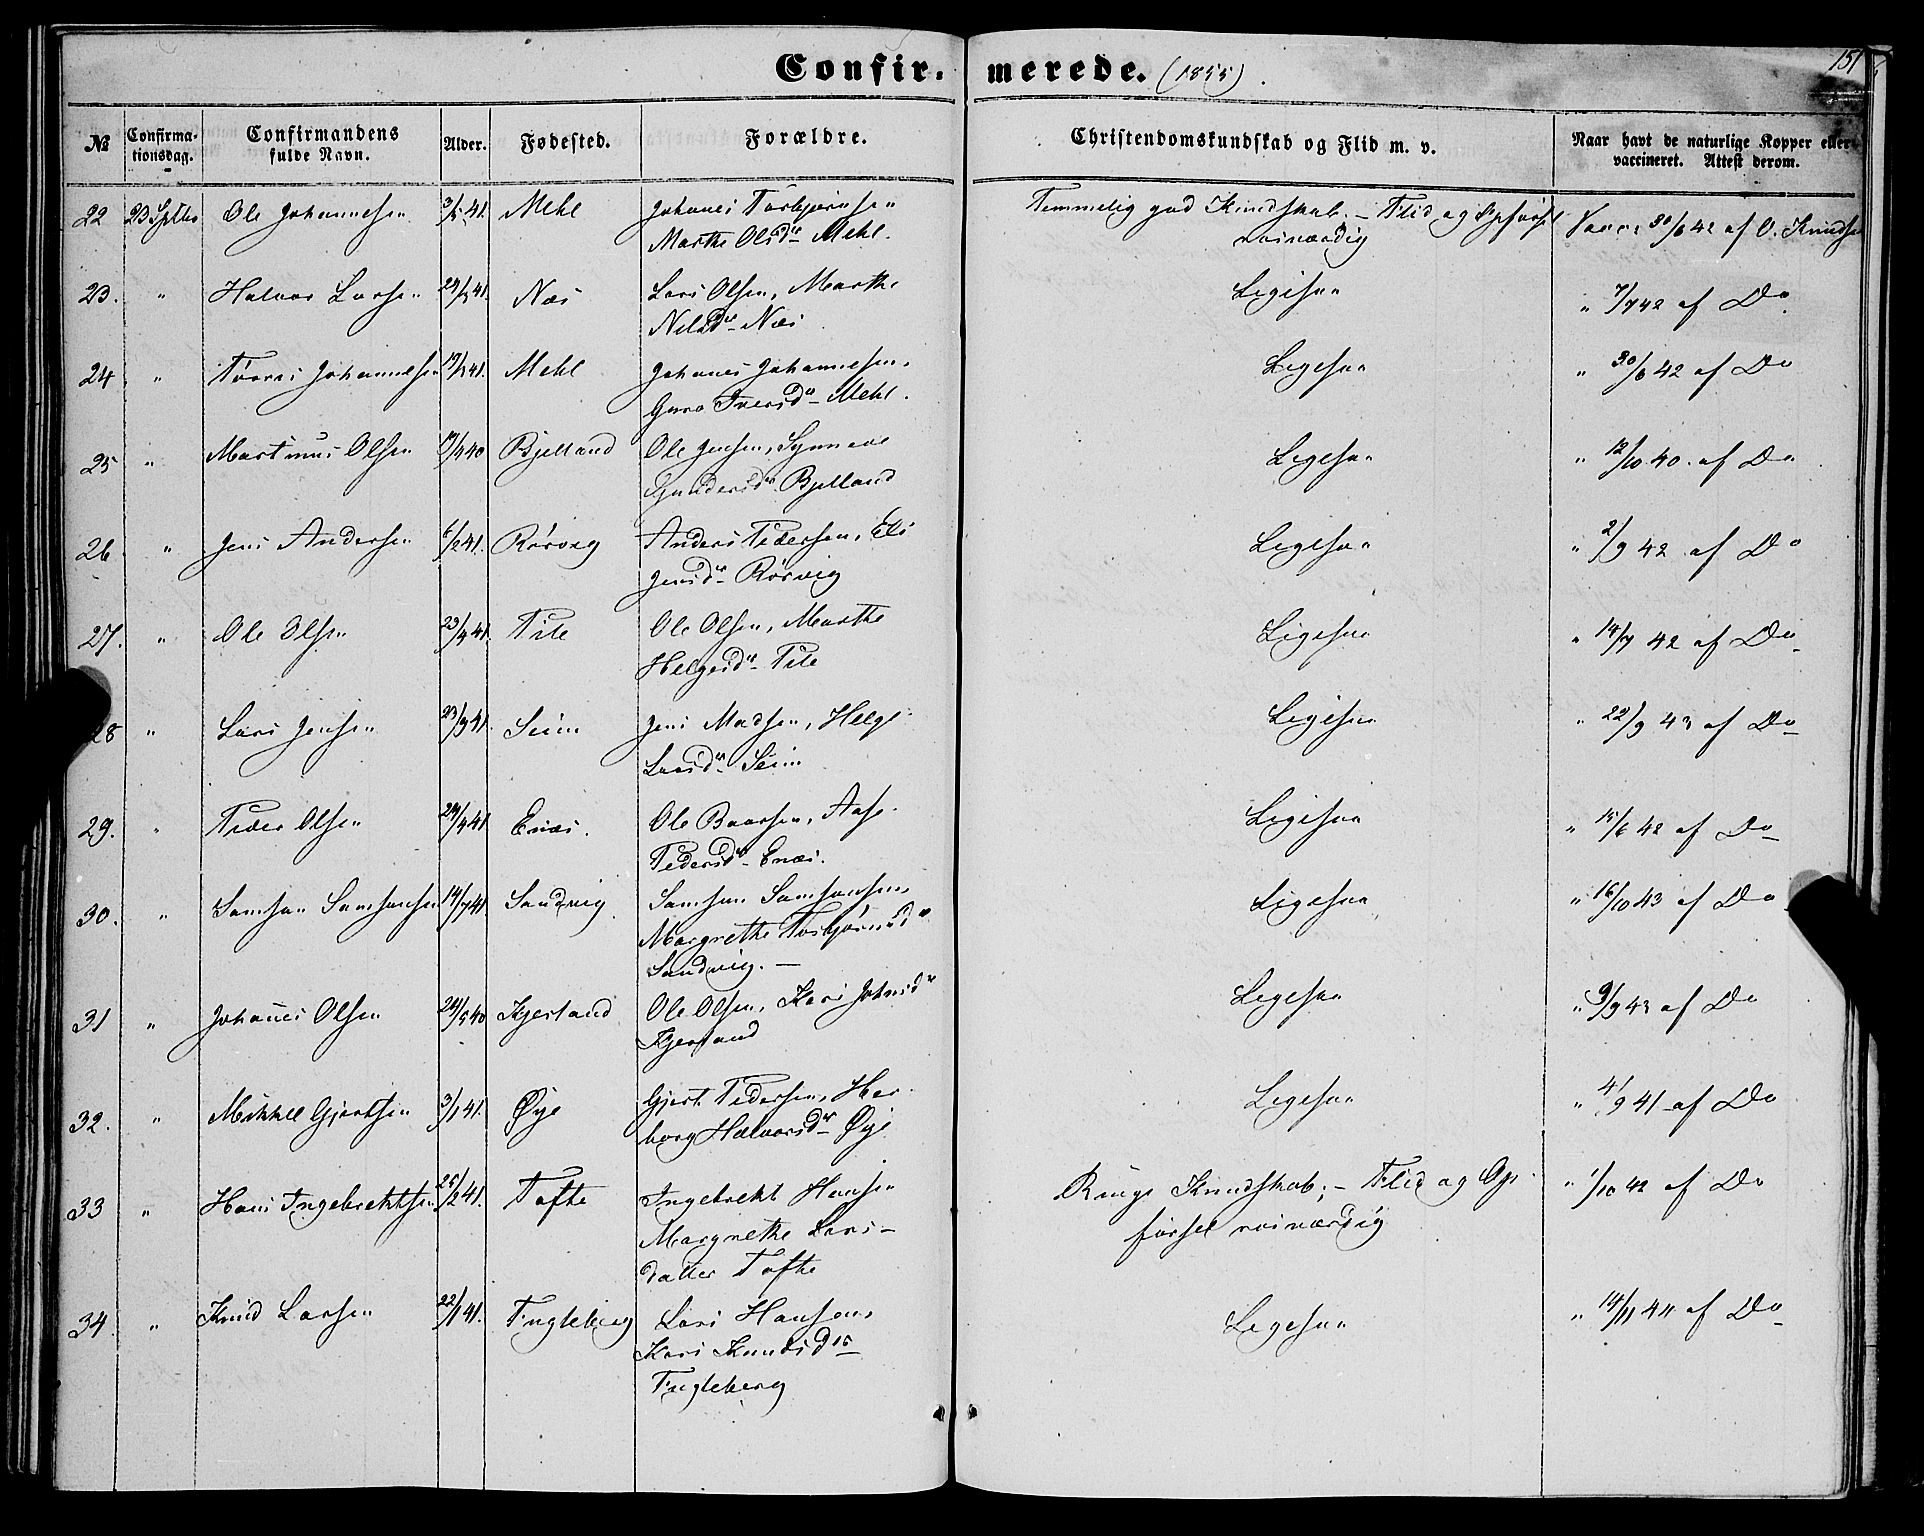 Confir- merede. (1855)
151
№ Confirma-tionsdag. Confirmandens fulde Navn. Alder. Fødested. Forældre. Christendomskundskab og Flid m. v. Naar havt de naturlige Kopper eller vaccineret. Attest derom.
22 23 Septbr Ole Johannesen 3/5 41. Mehl Johanes Torbjørnsen Temmelig god Kundskab. – Flid og Opførsel Vacc. 30/6 42 af O. Knudsen
Marthe Olsdr Mehl. roesværdig
23. " Halvor Larsen Næs Lars Olsen, Marthe Ligesaa " 7/7 42 af Do
Nilsdr Næs
24 " Tørres Johannesen Mehl Johanes Johannesen, Ligesaa " 30/6 42 af Do
Guro Iversdr Mehl.
25 " Martinus Olsen Bjelland Ole Jensen, Synneve Ligesaa " 12/10 40. af Do
Gundersdr Bjelland
26 " Jens Andersen 6/2 41. Rørvig Anders Pedersen, Eli Ligesaa " 2/9 42 af Do
Jensdr Rørvig
27. " Ole Olsen 23/4 41. Pile Ole Olsen, Marthe Ligesaa " 14/7 42 af Do
Helgesdr Pile
28 " Lars Jensen 23/3 41. Seim Jens Madsen, Helge Ligesaa " 22/9 43 af Do
Larsdr Seim
29. " Peder Olsen 24/4 41 Enæs. Ole Baarsen, Aase Ligesaa " 15/6 42 af Do
Pedersdr Enæs.
30. " Samson Samsonsen 14/7 41 Sandvig Samson Samsonsen, Ligesaa " 16/10 43 af Do
Margrethe Torbjørnsdr
Sandvig. –
31 " Johanes Olsen 24/5 40 Kjerland Ole Olsen, Kari Johnsdr Ligesaa " 9/9 43 af Do
Kjerland
32. " Mikkel Gjertsen 3/1 41. Øye Gjert Pedersen, Her- Ligesaa " 4/9 41 af Do
borg Halvorsdr Øye
33 " Hans Ingebrektsen 25/2 41. Tofte Ingebrekt Hansen Ringe Kundskab; – Flid og Op- " 1/10 42 af Do
Margrethe Lars- førsel roesværdig
datter Tofte
34. " Knud Larsen 22/1 41. Fugleberg Lars Hansen, Ligesaa " 14/11 41 af Do
Kari Knudsdr
Fugleberg